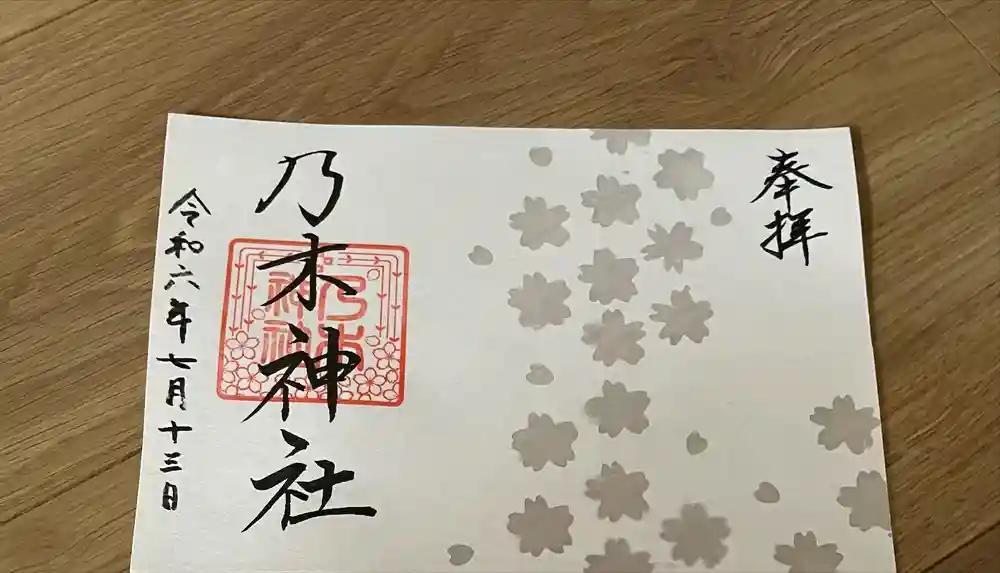 奉拝
乃木神社
乃木
神社
令和六年七月十三日